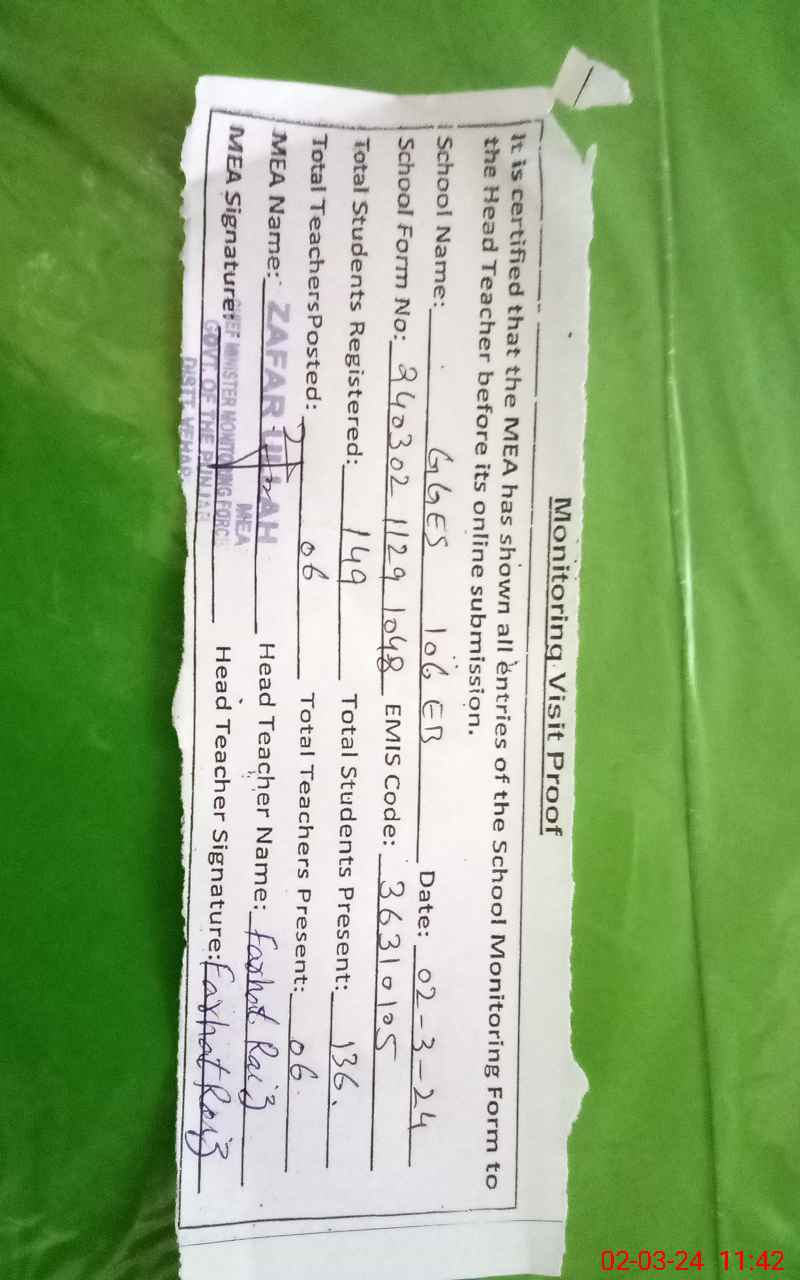 Monitoring Visit Proof
It is certified that the MEA has shown all entries of the School Monitoring Form to
the Head Teacher before its online submission.
School Name: GGES 106 EB Date: 02-3-24
School Form No: 240302 1129 1048 EMIS Code: 36310105
Total Students Registered: 149 Total Students Present: 136.
Total TeachersPosted: 06 Total Teachers Present: 06.
MEA Name: ZAFAR ULLAH Head Teacher Name: Farhat Raiz
MEA
MEA Signature: Head Teacher Signature: Farhat Raiz
CHIEF MINISTER MONITORING FORCE
GOVT. OF THE PUNJAB
DISTT. VEHARI
02-03-24 11:42